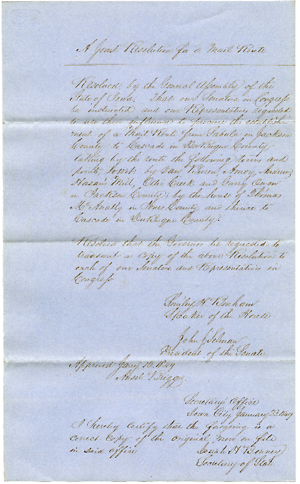 A Joint Resolution for a Mail Route
Resolved by the General Assembly of the
State of Iowa, That our Senators in Congress
be instructed and our Representatives requested
to use their influence to procure the establish-
ment of a Mail Route from Sabula in Jackson
County to Cascade in Dubuque County
taking by the route the following towns and
points, to wit: by Van Buren, Andrew,
Mill, Otter Creek and
in Jackson County, by the house of Thomas
McNally in Jones County and thence to
Cascade in Dubuque County.
Resolved that the Governor be requested to
transmit a copy of the above Resolution to
each of our Senators and Representatives in
Congress.
Smiley H Bonham
Speaker of the House
John J Selman
President of the Senate
Approved Jany 1849
Ansel Briggs
Secretary's Office
Iowa City January 1849
I hereby certify that the foregoing is a
correct copy of the original, now on file
in said office
Josiah H Bonney
Secretary of State